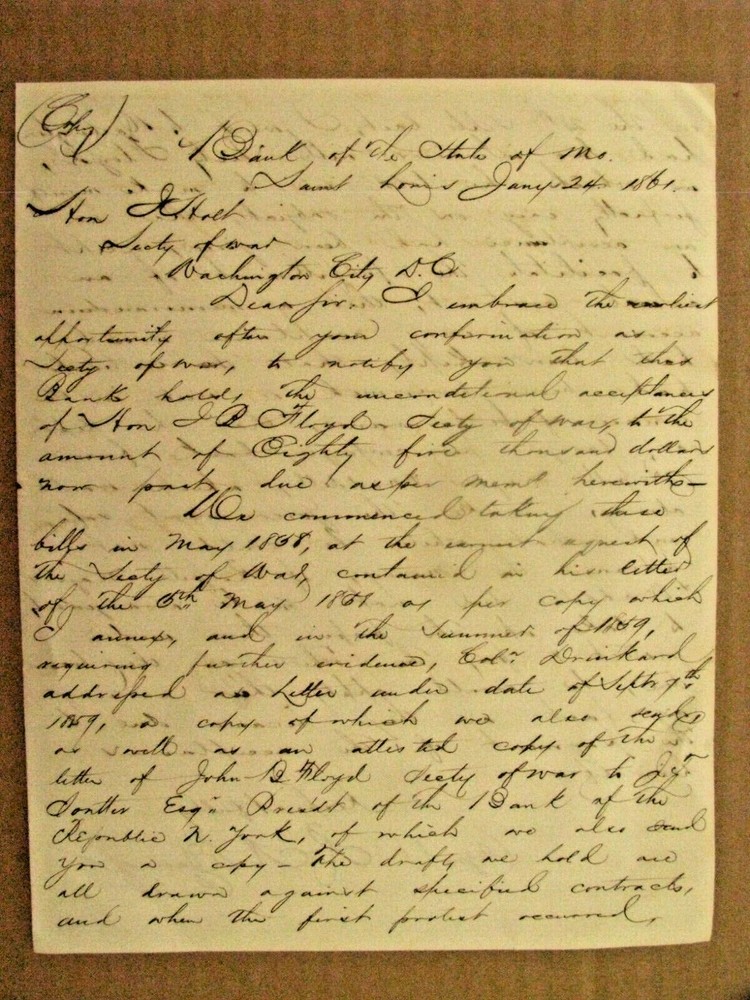 (Copy)
Bank of the State of Mo.
Saint Louis Jany 24 1861.
Hon J Holt
Secty of War
Washington City D.C.
Dear Sir. I embrace the earliest
opportunity after your confirmation as
Secty. of War, to notify you that this
Bank holds, the unconditional acceptances
of Hon J B Floyd Secty of War, to the
amount of Eighty five thousand dollars
now past due as per memo herewith—
We commenced taking these
bills in May 1858, at the earnest request of
the Secty of War, contained in his letter
of the May as per copy which
I annex, and in the summer of 1859,
requiring further evidence, Col. Drinkard
addressed a Letter under date of Septr 7th
1859, a copy of which we also
as well as an attested copy of the
letter of John B Floyd Secty of War to
Soutter Esqr Presidt of the Bank of the
Republic N. York, of which we also send
you a copy — The drafts we hold are
all drawn against specified contracts,
and when the first protest occurred,